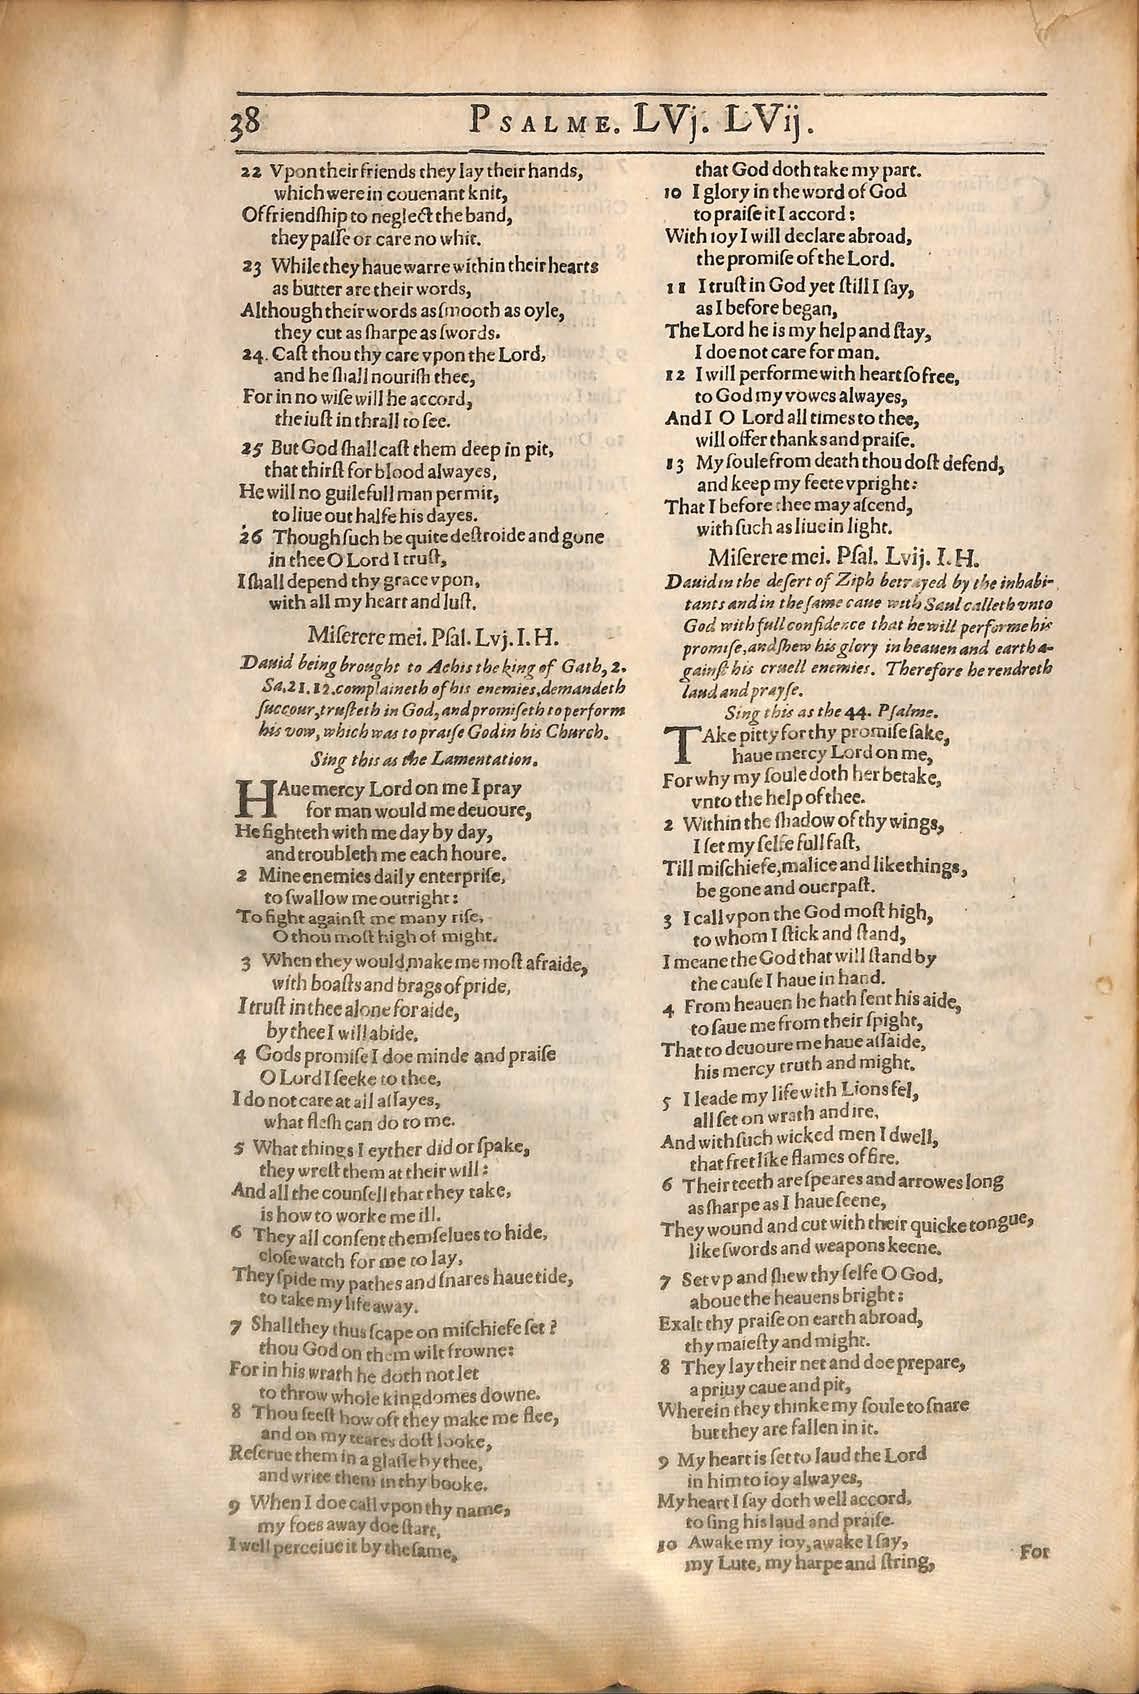 38
PSALME. LVj. LVij.
22 Vpon their friends they lay their hands,
which were in couenant knit,
Of friendſhip to neglect the band,
they paſſe or care no whit.
23 While they haue warre within their hearts
as butter are their words,
Although their words as ſmooth as oyle,
they cut as ſharpe as ſwords.
24. Caſt thou thy care vpon the Lord,
and he ſhall nouriſh thee,
For in no wiſe will he accord,
the iuſt in thrall to ſee.
25 But God ſhall caſt them deep in pit,
that thirſt for blood alwayes,
He will no guilefull man permit,
to liue out halfe his dayes.
26 Though ſuch be quite deſtroide and gone
in thee O Lord I truſt,
I ſhall depend thy grace vpon,
with all my heart and luſt.
Miſerere mei. Pſal. Lvj. I. H.
Dauid being brought to Achis the king of Gath, 2.
Sa. 21. 12. complaineth of his enemies, demandeth
ſuccour, truſteth in God, and promiſeth to perform
his vow, which was to praiſe God in his Church.
Sing this as the Lamentation.
HAue mercy Lord on me I pray
for man would me deuoure,
He fighteth with me day by day,
and troubleth me each houre.
2 Mine enemies daily enterpriſe,
to ſwallow me outright:
To fight againſt me many riſe,
O thou moſt high of might.
3 When they would make me moſt afraide,
with boaſts and brags of pride,
I truſt in thee alone for aide,
by thee I will abide.
4 Gods promiſe I doe minde and praiſe
O Lord I ſeeke to thee,
I do not care at all aſſayes,
what fleſh can do to me.
5 What things I eyther did or ſpake,
they wreſt them at their will:
And all the counſell that they take,
is how to worke me ill.
6 They all conſent themſelues to hide,
cloſe watch for me to lay,
They ſpide my pathes and ſnares haue tide,
to take my life away.
7 Shall they thus ſcape on miſchiefe ſet?
thou God on them wilt frowne:
For in his wrath he doth not let
to throw whole kingdomes downe.
8 Thou ſeeſt how oft they make me flee,
and on my teares doſt looke,
Reſerue them in a glaſſe by thee,
and write them in thy booke.
9 When I doe call vpon thy name,
my foes away doe ſtart,
I well perceiue it by the ſame,
that God doth take my part.
10 I glory in the word of God
to praiſe it I accord:
With ioy I will declare abroad,
the promiſe of the Lord.
11 I truſt in God yet ſtill I ſay,
as I before began,
The Lord he is my help and ſtay,
I doe not care for man.
12 I will performe with heart ſo free,
to God my vowes alwayes,
And I O Lord all times to thee,
will offer thanks and praiſe.
13 My ſoule from death thou doſt defend,
and keep my feete vpright:
That I before thee may aſcend,
with ſuch as liue in light.
Miſerere mei. Pſal. Lvij. I. H.
Dauid in the deſert of Ziph betrayed by the inhabi-
tants and in the ſame caue with Saul calleth vnto
God with full confidence that he will performe his
promiſe, and ſhew his glory in heauen and earth a-
gainſt his cruell enemies. Therefore he rendreth
laud and prayſe.
Sing this as the 44. Pſalme.
TAke pitty for thy promiſe ſake,
haue mercy Lord on me,
For why my ſoule doth her betake,
vnto the help of thee.
2 Within the ſhadow of thy wings,
I ſet my ſelfe full faſt,
Till miſchiefe, malice and like things,
be gone and ouerpaſt.
3 I call vpon the God moſt high,
to whom I ſtick and ſtand,
I meane the God that will ſtand by
the cauſe I haue in hand.
4 From heauen he hath ſent his aide,
to ſaue me from their ſpight,
That to deuoure me haue aſſaide,
his mercy truth and might.
5 I leade my life with Lions fel,
all ſet on wrath and ire,
And with ſuch wicked men I dwell,
that fret like flames of fire.
6 Their teeth are ſpeares and arrowes long
as ſharpe as I haue ſeene,
They wound and cut with their quicke tongue,
like ſwords and weapons keene.
7 Set vp and ſhew thy ſelfe O God,
aboue the heauens bright:
Exalt thy praiſe on earth abroad,
thy maieſty and might.
8 They lay their net and doe prepare,
a priuy caue and pit,
Wherein they thinke my ſoule to ſnare
but they are fallen in it.
9 My heart is ſet to laud the Lord
in him to ioy alwayes,
My heart I ſay doth well accord,
to ſing his laud and praiſe.
10 Awake my ioy, awake I ſay,
my Lute, my harpe and ſtring,
For